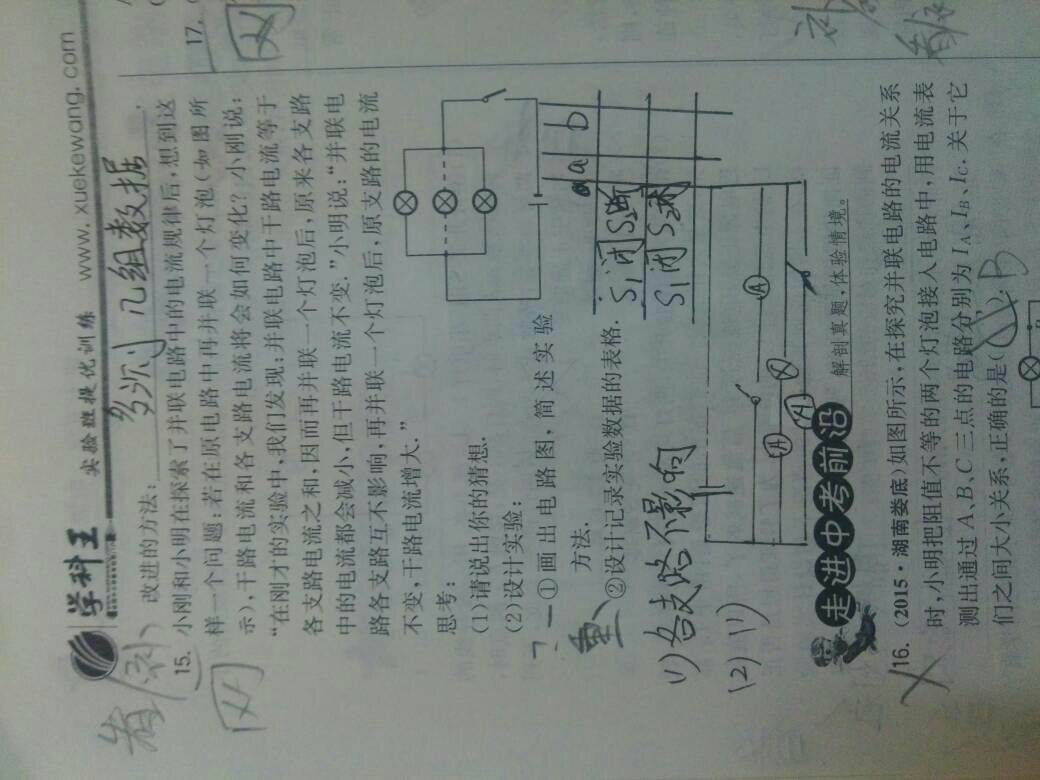 学科王
实验班提优训练
www.xuekewang.com
改进的方法:多测几组数据.
15. 小刚和小明在探索了并联电路中的电流规律后,想到这
样一个问题:若在原电路中再并联一个灯泡(如图所
示),干路电流和各支路电流将会如何变化?小刚说:
“在刚才的实验中,我们发现:并联电路中干路电流等于
各支路电流之和,因而再并联一个灯泡后,原来各支路
中的电流都会减小,但干路电流不变.”小明说:“并联电
路各支路互不影响,再并联一个灯泡后,原支路的电流
不变,干路电流增大.”
思考:
(1)请说出你的猜想.
(2)设计实验:
①画出电路图,简述实验
方法.
②设计记录实验数据的表格.
重
a b
S₁闭 S₂断
S₁闭 S₂闭
1) 各支路不影响
(2) 1)
A
A
A
走进中考前沿
解剖真题,体验情境。
16. (2015·湖南娄底)如图所示,在探究并联电路的电流关系
时,小明把阻值不等的两个灯泡接入电路中,用电流表
测出通过 A、B、C 三点的电路分别为 I_A、I_B、I_C. 关于它
们之间大小关系,正确的是(
B
17.